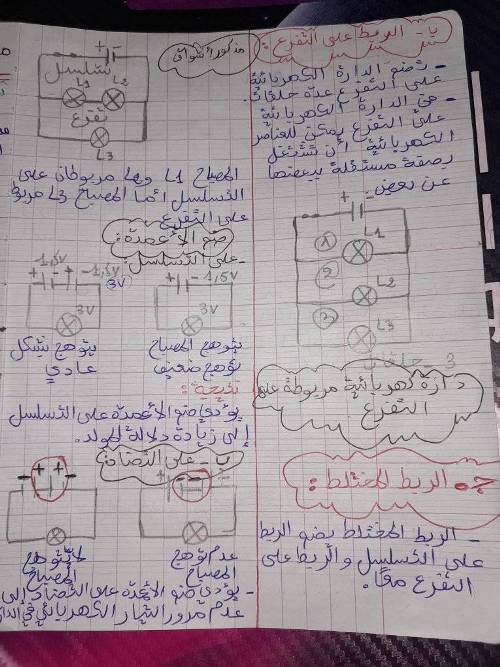 ب- الربط على التفرع :
- تضم الدارة الكهربائية
على التفرع عدة حلقات.
- في الدارة الكهربائية
على التفرع يمكن للعناصر
الكهربائية أن تشتغل
بصفة مستقلة ببعضها
عن بعض.
+ -
L1
1
2
L2
3
L3
3 حلقات
دارة كهربائية مربوطة على
التفرع
ج- الربط المختلط :
- الربط المختلط يضو الربط
على التسلسل والربط على
التفرع معًا.
+ -
تسلسل
L1 L2
تفرع
L3
المصباح L1 و L2 مربوطان على
التسلسل أما المصباح L3 مربوط
على التفرع
ضم الأعمدة :
- على التسلسل :
1,5V 1,5V
3V
3V
+ - 1,5V
3V
يتوهج المصباح
توهج ضعيف
يتوهج بشكل
عادي
نتيجة :
يؤدي ضم الأعمدة على التسلسل
إلى زيادة دلالة المولد.
ب- على التضاد :
- + + -
+ - - +
عدم توهج
المصباح
لا يتوهج
المصباح
- يؤدي ضم الأعمدة على التضاد إلى
عدم مرور التيار الكهربائي في الدا